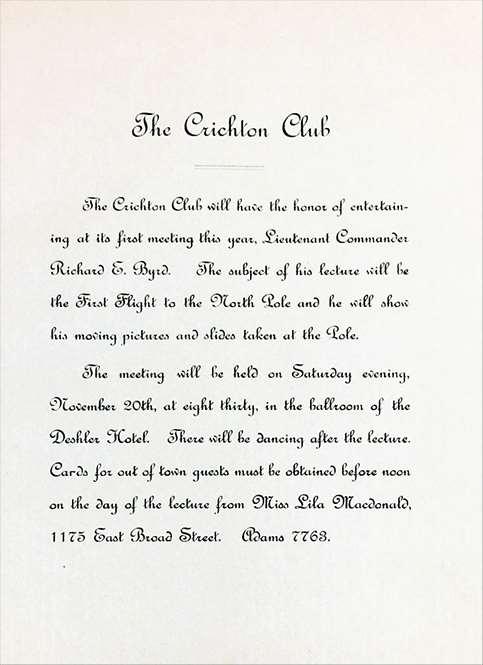 The Crichton Club
The Crichton Club will have the honor of entertain-
ing at its first meeting this year, Lieutenant Commander
Richard E. Byrd. The subject of his lecture will be
the First Flight to the North Pole and he will show
his moving pictures and slides taken at the Pole.
The meeting will be held on Saturday evening,
November 20th, at eight thirty, in the ballroom of the
Deshler Hotel. There will be dancing after the lecture.
Cards for out of town guests must be obtained before noon
on the day of the lecture from Miss Lila Macdonald,
1175 East Broad Street. Adams 7763.